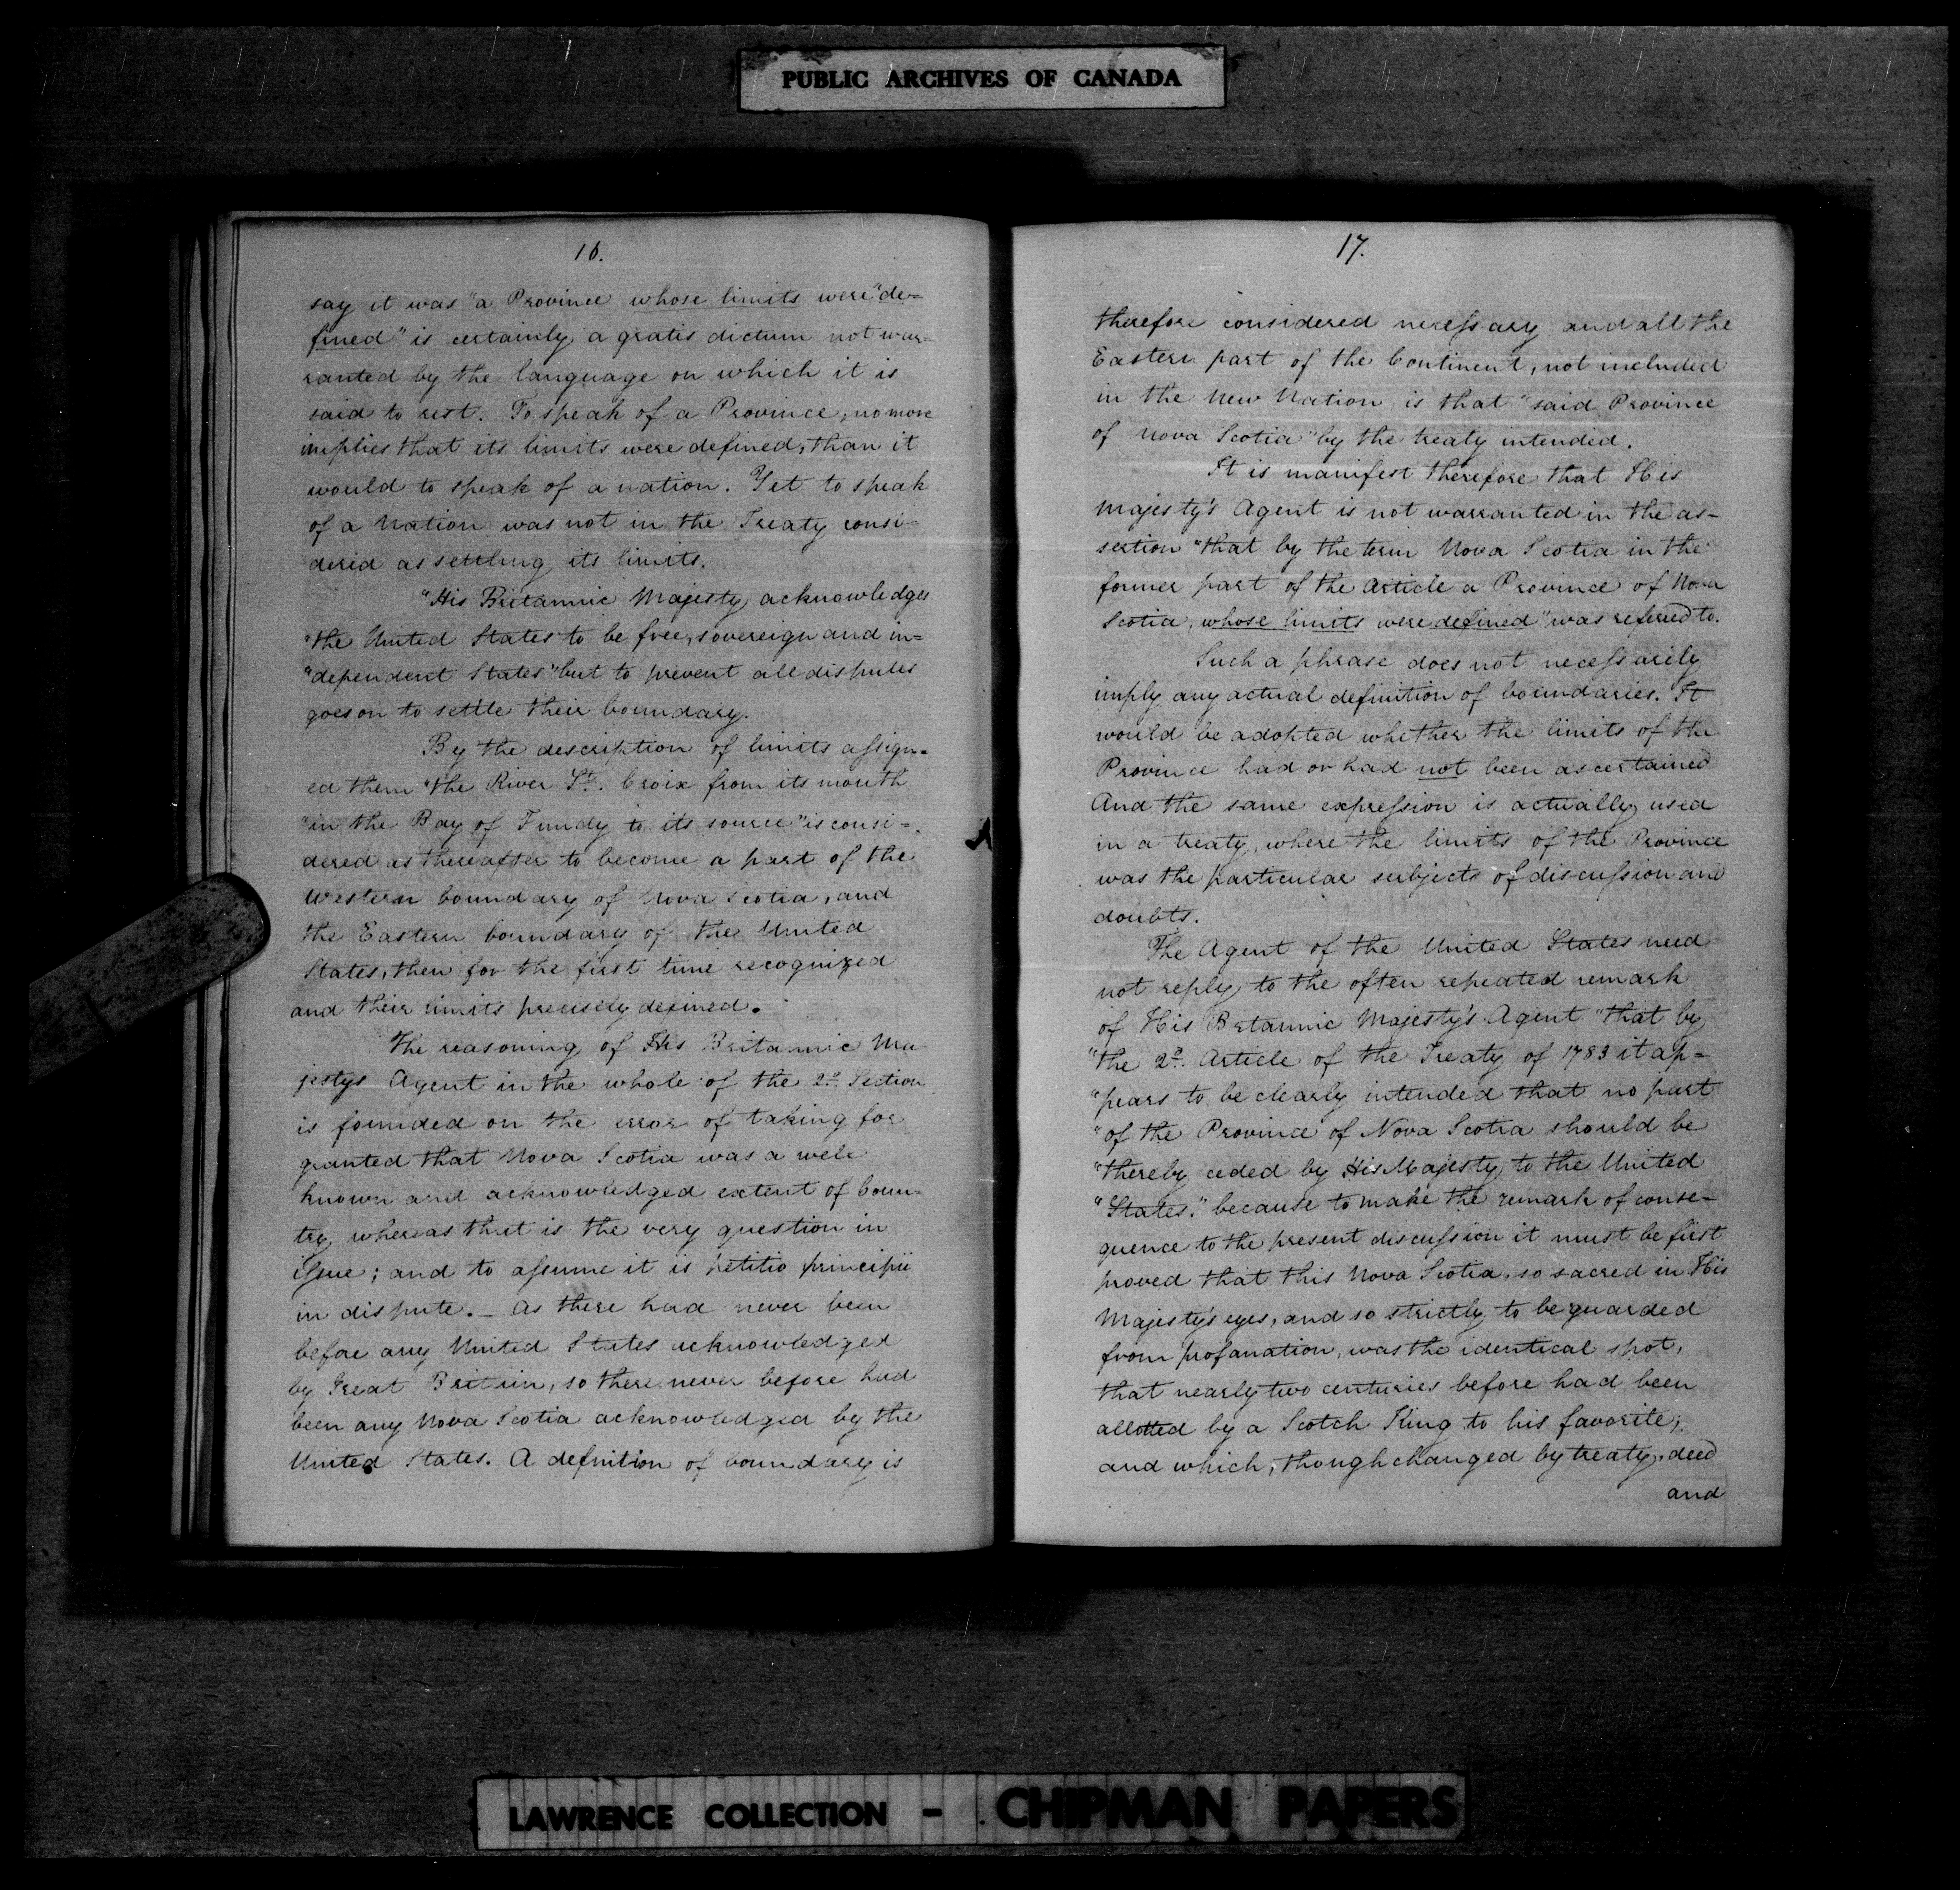 PUBLIC ARCHIVES OF CANADA
16.
say it was "a Province whose limits were "de=
fined" is certainly a gratis dictum not war=
ranted by the language on which it is
said to rest. To speak of a Province, no more
implies that its limits were defined, than it
would to speak of a nation. Yet to speak
of a Nation was not in the Treaty consi=
derid as settling its limits.
"His Britannic Majesty acknowledges
"the United States to be free, sovereign and in=
"dependent States" but to prevent all disputes
goes on to settle their boundary.
By the description of limits assign=
ed them "the River St. Croix from its mouth
"in the Bay of Fundy to its source" is consi=
dered as thereafter to become a part of the
Western boundary of Nova Scotia, and
the Eastern boundary of the United
States, then for the first time recognized
and their limits precisely defined.
The reasoning of His Britannic Ma
jestys Agent in the whole of the 2d. Section
is founded on the error of taking for
granted that Nova Scotia was a well
known and acknowledged extent of Coun=
try, whereas that is the very question in
issue; and to assume it is petitio principii
in dispute. _ As there had never been
before any United States acknowledged
by Great Britain, so there never before had
been any Nova Scotia acknowledged by the
United States. A definition of boundary is
17.
therefore considered necessary and all the
Eastern part of the Continent, not included
in the New Nation is that "said Province
of Nova Scotia" by the treaty intended.
It is manifest therefore that His
Majesty's Agent is not warranted in the as-
sertion "that by the term Nova Scotia in the
former part of the Article a Province of Nova
Scotia, whose limits were defined" was referred to.
Such a phrase does not necessarily
imply any actual definition of boundaries. It
would be adopted whether the limits of the
Province had or had not been ascertained
And the same expression is actually used
in a treaty, where the limits of the Province
was the particular subjects of discussion and
doubts.
The Agent of the United States need
not reply to the often repeated remark
of His Britannic Majesty's Agent "that by
"the 2d. Article of the Treaty of 1783 it ap=
"pears to be clearly intended that no part
"of the Province of Nova Scotia should be
"thereby ceded by His Majesty to the United
"States." because to make the remark of conse-
quence to the present discussion it must be first
proved that this Nova Scotia, so sacred in His
Majesty's eyes, and so strictly to be guarded
from profanation, was the identical spot,
that nearly two centuries before had been
allotted by a Scotch King to his favorite;
and which, though changed by treaty, deed
and
LAWRENCE COLLECTION - CHIPMAN PAPERS